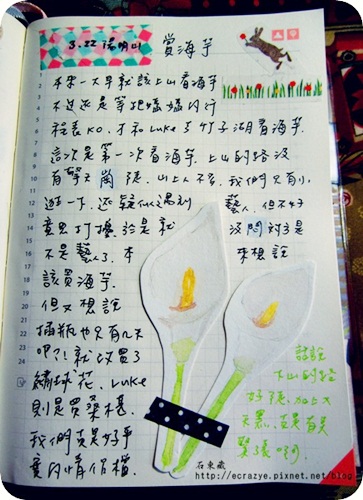 3.22 陽明山 賞海芋
本來一大早就該上山看海芋
不過還是等把媽媽的行
程表KO,才和Luke去竹子湖看海芋.
這次是第一次看海芋.上山的路沒
有擎天崗陡.山上人不多,我們只有小
逛一下.還疑似遇到藝人.但不好
意思打擾.於是就沒問對方是
不是藝人了.本來想說
該買海芋.
但又想說
插瓶也只有几天
吧?!就改買了
繡球花.Luke
則是買桑椹.
我們真是好爭
意的情侶檔.
話說
下山的路
好陡.加上
天黑.真是有夠
緊張呀!
石東嚴
http://ecrazye.pixnet.net/blog